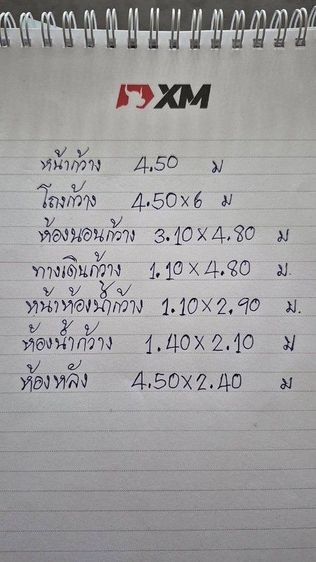 XM
หน้ากว้าง 4.50 ม
โถงกว้าง 4.50×6 ม
ห้องนอนกว้าง 3.10×4.80 ม
ทางเดินกว้าง 1.10×4.80 ม.
หน้าห้องน้ำกว้าง 1.10×2.90 ม.
ห้องน้ำกว้าง 1.40×2.10 ม
ห้องหลัง 4.50×2.40 ม